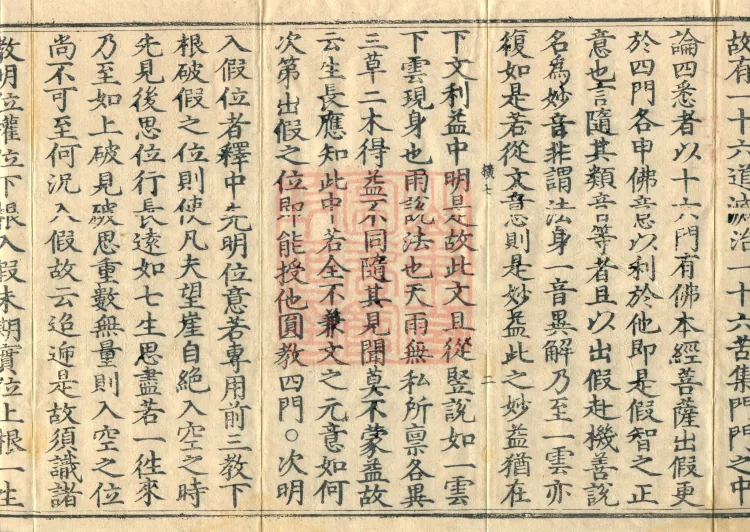 故有一十六道滅治一十六苦集門門之中
論四悉者以十六門有佛本經菩薩出假更
於四門各申佛意以利於他即是假智之正
意也言隨其類音等者且以出假赴機善說
名為妙音非謂法身一音異解乃至一雲亦
復如是若從文意則是妙益此之妙益猶在
下文利益中明是故此文且從竪說如一雲
下雲現身也雨說法也天雨無私所稟各異
三草二木得益不同隨其見聞莫不蒙益故
云生長應知此中若全不兼文之元意如何
次第出假之位即能授他圓教四門○次明
入假位者釋中先明位意若專用前三教下
根破假之位則使凡夫望崖自絕入空之時
先見後思位行長遠如七生思盡若一往來
乃至如上破見破思重數無量則入空之位
尚不可至何況入假故云迢遞是故須識諸
教明位權位下根入假未期實位上根一生